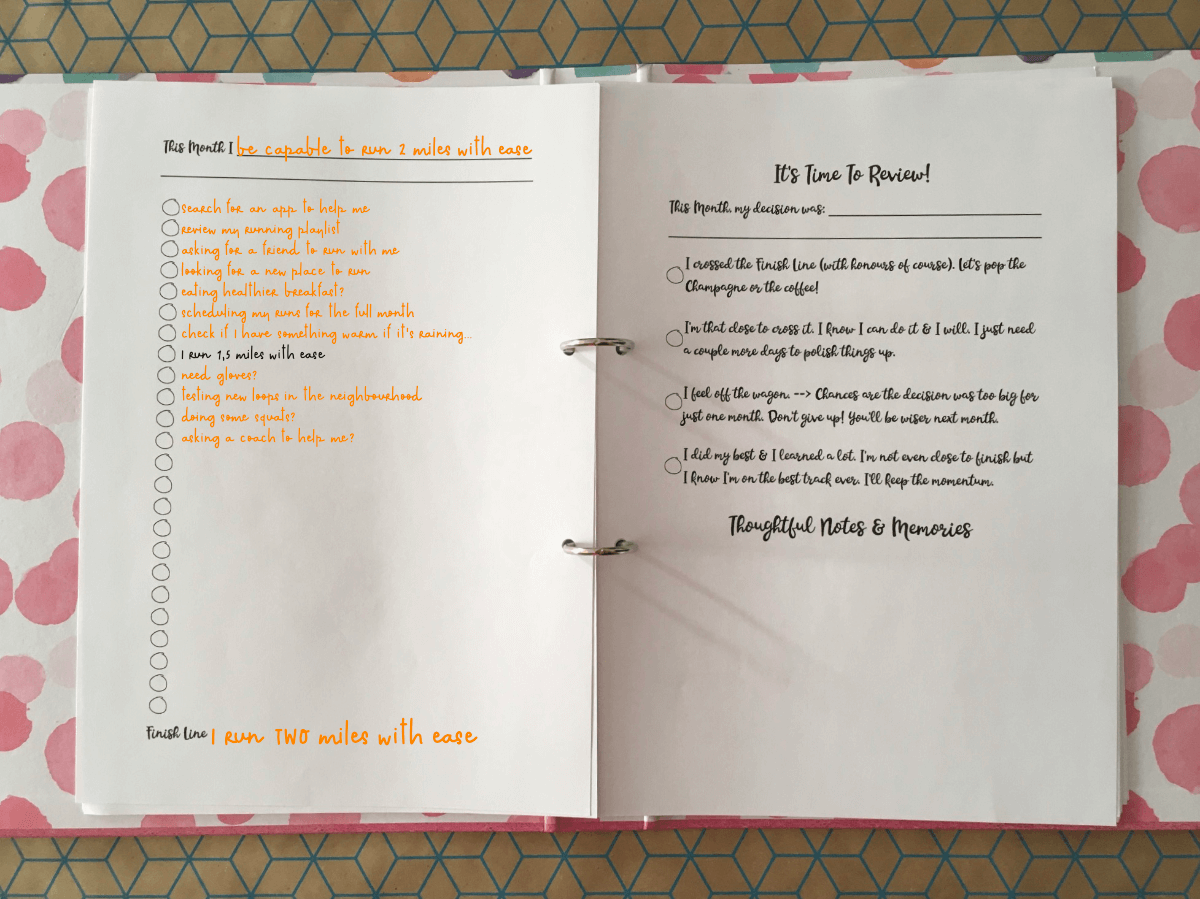 This Month I be capable to run 2 miles with ease
search for an app to help me
review my running playlist
asking for a friend to run with me
looking for a new place to run
eating healthier breakfast?
scheduling my runs for the full month
check if I have something warm if it's raining...
I run 1,5 miles with ease
need gloves?
testing new loops in the neighbourhood
doing some squats?
asking a coach to help me?
Finish Line I run TWO miles with ease
It's Time To Review!
This Month, my decision was:
I crossed the Finish Line (with honours of course). Let's pop the
Champagne or the coffee!
I'm that close to cross it. I know I can do it & I will. I just need
a couple more days to polish things up.
I feel off the wagon. --> Chances are the decision was too big for
just one month. Don't give up! You'll be wiser next month.
I did my best & I learned a lot. I'm not even close to finish but
I know I'm on the best track ever. I'll keep the momentum.
Thoughtful Notes & Memories